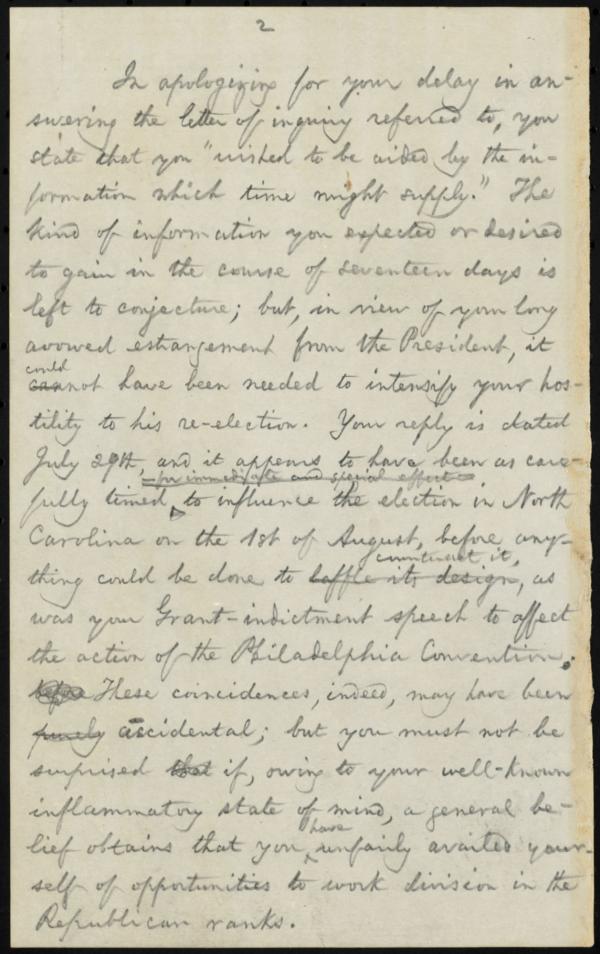 2
In apologizing for your delay in an-
swering the letter of inquiry referred to, you
state that you "wished to be aided by the in-
formation which time might supply." The
kind of information you expected or desired
to gain in the course of seventeen days is
left to conjecture; but, in view of your long
avowed estrangement from the President, it
could
cannot have been needed to intensify your hos-
tility to his re-election. Your reply is dated
July 29th, and it appears to have been as care-
for immediate and special effect
fully timed to influence the election in North
Carolina on the 1st of August, before any-
counteract it,
thing could be done to baffle its design, as
was your Grant-indictment speech to affect
the action of the Philadelphia Convention.
before These coincidences, indeed, may have been
purely accidental; but you must not be
surprised that if, owing to your well-known
inflammatory state of mind, a general be-
have
lief obtains that you unfairly availed your-
self of opportunities to work division in the
Republican ranks.